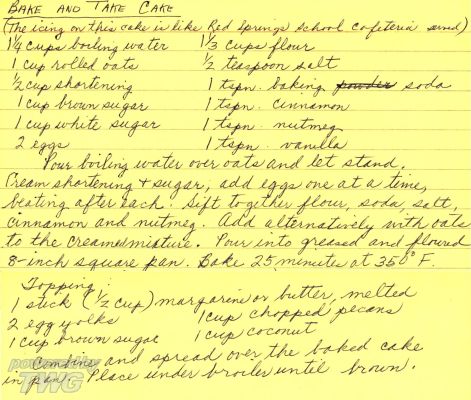 BAKE AND TAKE CAKE
(The icing on this cake is like Red Springs School Cafeteria served)
1 1/4 cups boiling water 1 1/3 cups flour
1 cup rolled oats 1/2 teaspoon salt
1/2 cup shortening 1 tspn. baking powder soda
1 cup brown sugar 1 tspn. cinnamon
1 cup white sugar 1 tspn. nutmeg
2 eggs 1 tspn. vanilla
Pour boiling water over oats and let stand.
Cream shortening + sugar, add eggs one at a time,
beating after each. Sift together flour, soda, salt,
cinnamon and nutmeg. Add alternatively with oats
to the creamed mixture. Pour into greased and floured
8-inch square pan. Bake 25 minutes at 350° F.
Topping:
1 stick (1/2 cup) margarine or butter, melted
2 egg yolks 1 cup chopped pecans
1 cup brown sugar 1 cup coconut
Combine and spread over the baked cake
in pan. Place under broiler until brown.
powered by
TWG